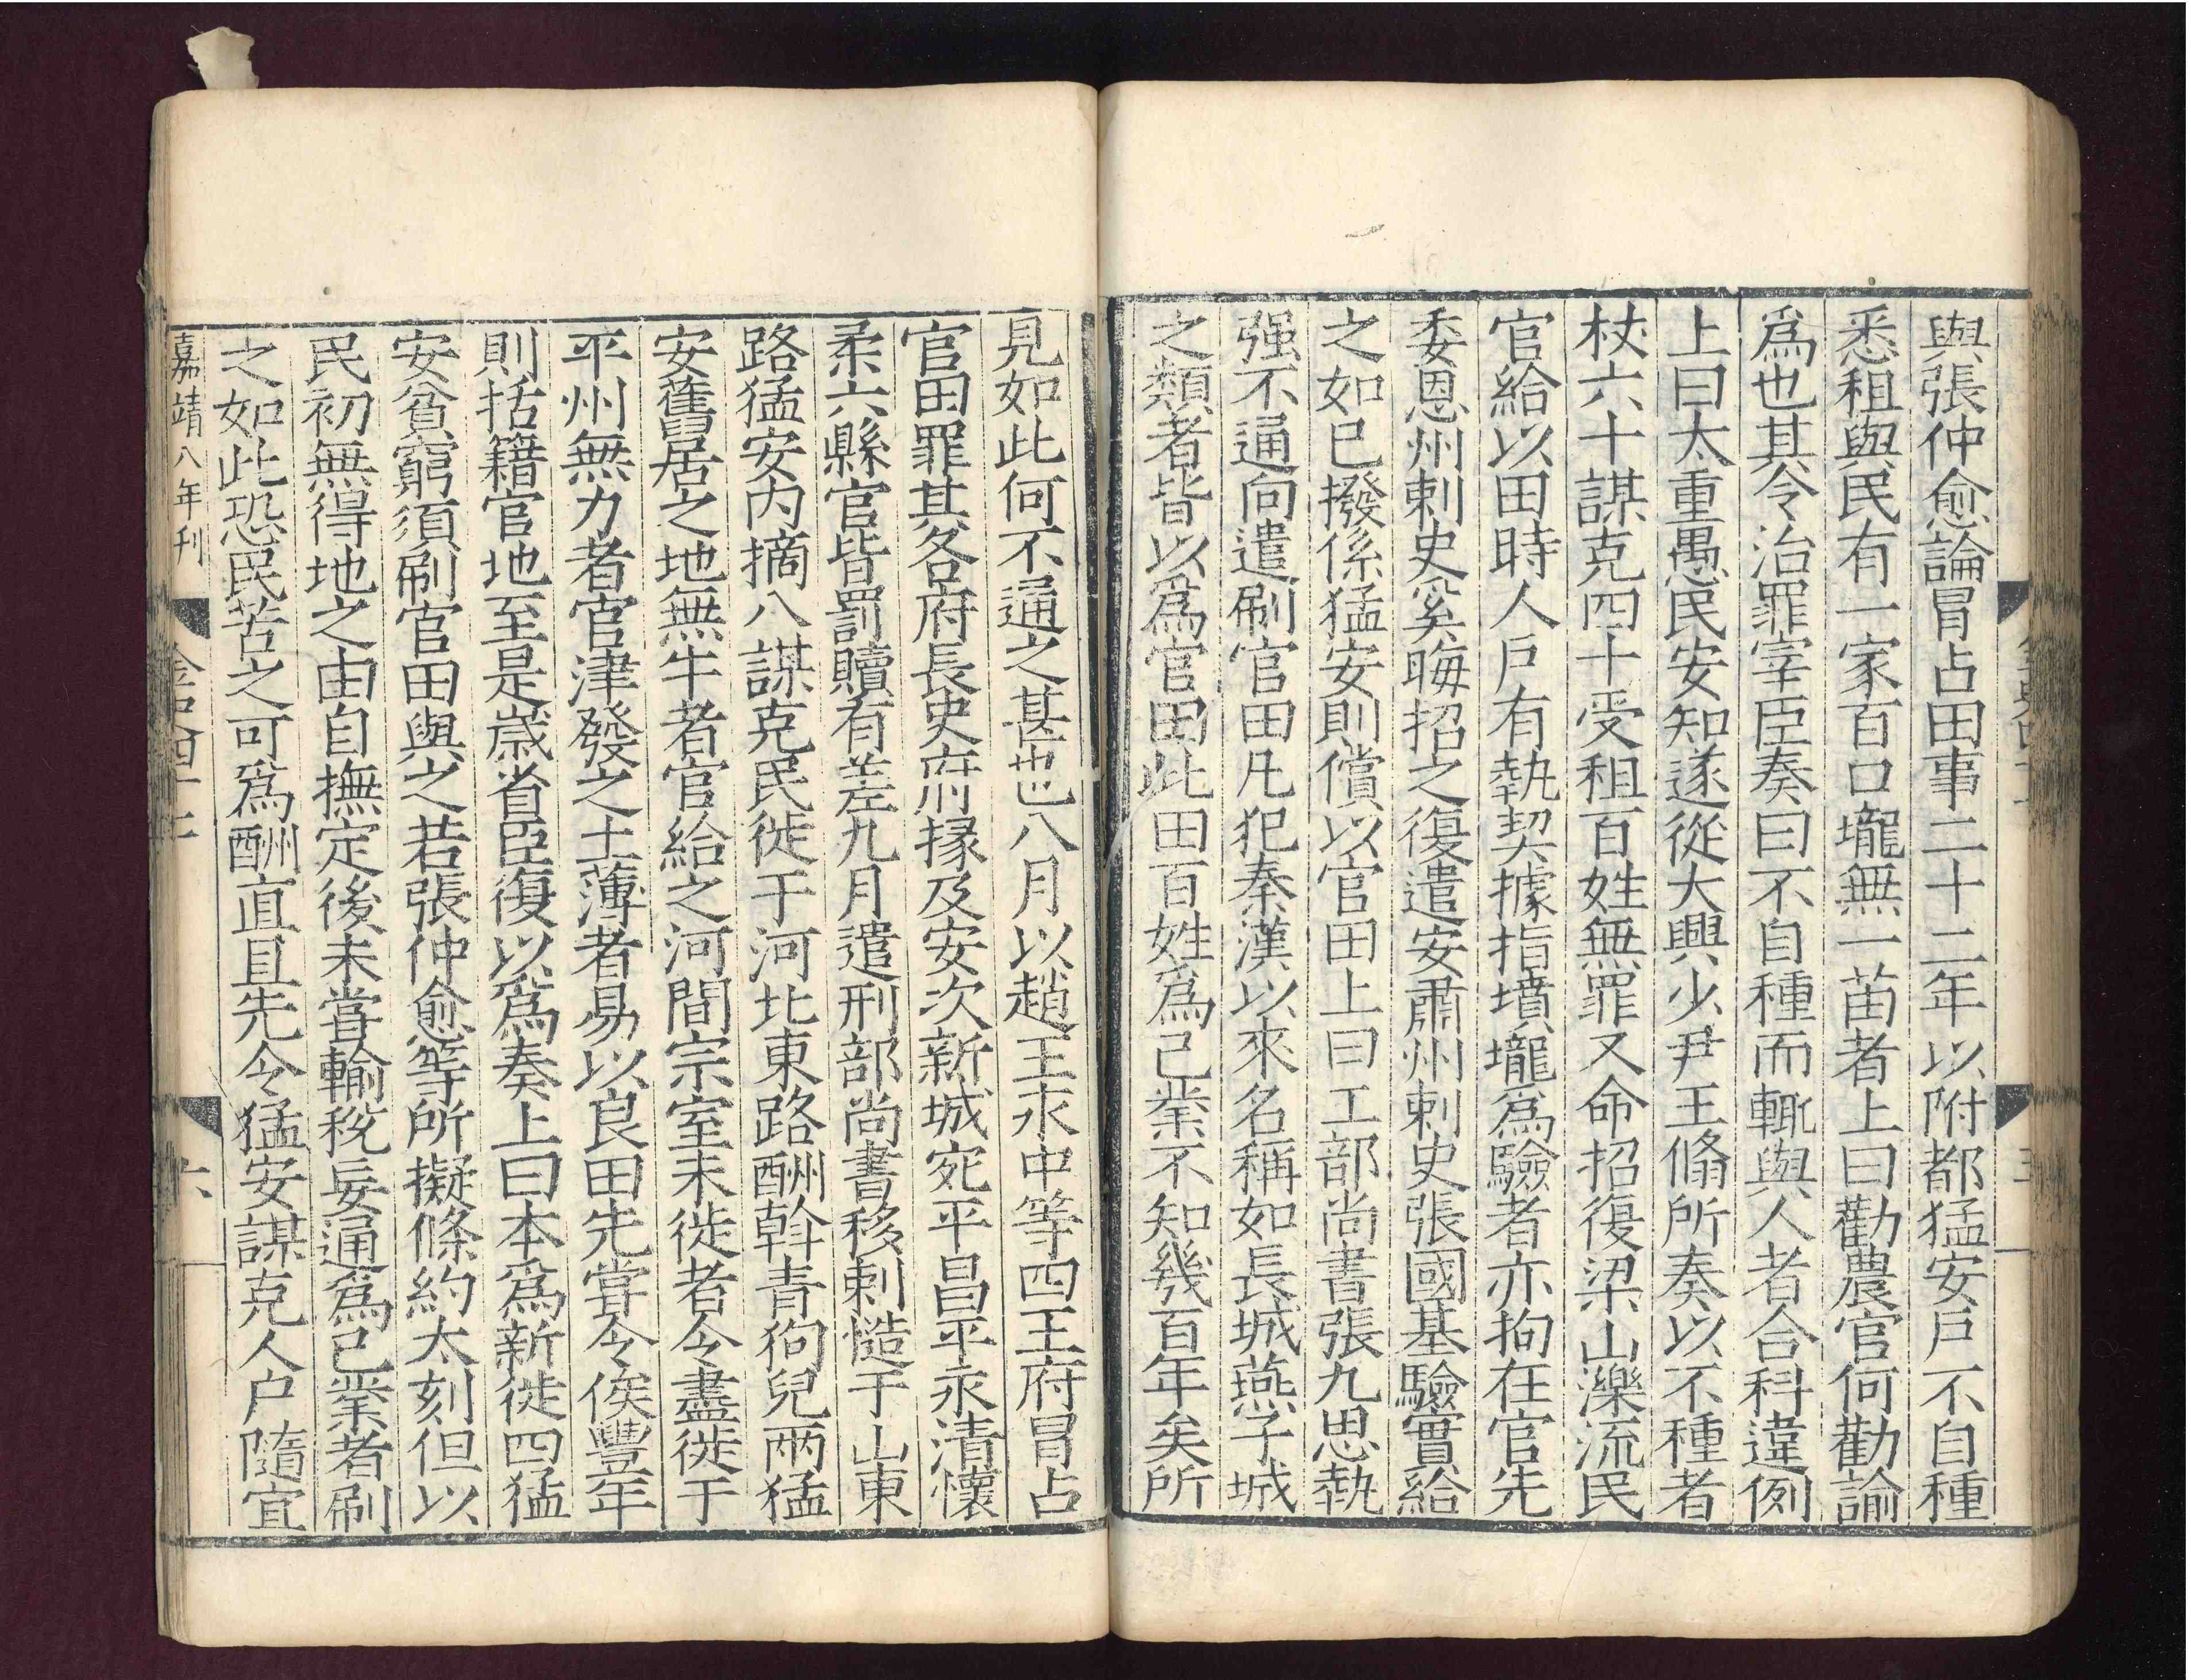 與張仲愈論冒占田事二十二年以附都猛安戶不自種
悉租與民有一家百口壠無一苗者上曰勸農官何勸諭
爲也其令治罪宰臣奏曰不自種而輒與人者合科違例
上曰太重愚民安知遂從大興少尹王脩所奏以不種者
杖六十謀克四十受租百姓無罪又命招復梁山濼流民
官給以田時人戶有執契據指墳壠爲驗者亦拘在官先
委恩州刺史奚晦招之復遣安肅州刺史張國基驗實給
之如已撥係猛安則償以官田上曰工部尚書張九思執
强不通向遣刷官田凡犯秦漢以來名稱如長城燕子城
之類者皆以爲官田此田百姓爲己業不知幾百年矣所
見如此何不通之甚也八月以趙王永中等四王府冒占
官田罪其各府長史府掾及安次新城宛平昌平永清懷
柔六縣官皆罰贖有差九月遣刑部尚書移剌慥于山東
路猛安内摘八謀克民徙于河北東路酬斡青狗兒兩猛
安舊居之地無牛者官給之河間宗室未徙者令盡徙于
平州無力者官津發之土薄者易以良田先嘗令俟豐年
則括籍官地至是歲省臣復以爲奏上曰本爲新徙四猛
安貧窮須刷官田與之若張仲愈等所擬條約太刻但以
民初無得地之由自撫定後未嘗輸稅妄通爲己業者刷
之如此恐民苦之可爲酬直且先令猛安謀克人户隨宜
嘉靖八年刊
金史四十七
六